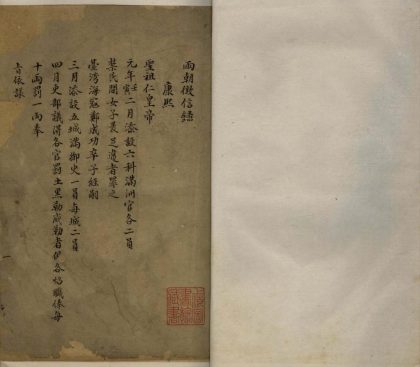 兩朝徵信錄
康熙
聖祖仁皇帝
元年壬寅二月添設六科滿洲官各二員
禁民間女子裹足違者罪之
臺灣海寇鄭成功卒子經嗣
三月添設五城滿御史一員每城二員
四月吏部議得各官罰土黑勒威勒者各俸每
十兩罰一兩奉
旨依議